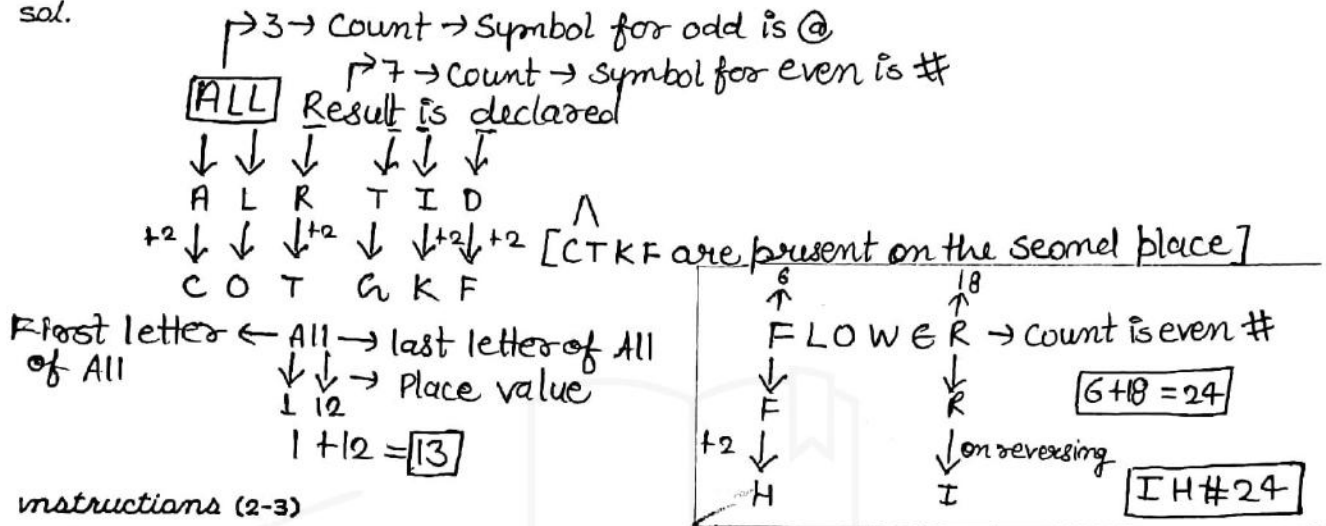 sol.
→3→ Count → Symbol for odd is @
→7→ Count → symbol for even is #
ALL Result is declared
↓ ↓ ↓ ↓ ↓ ↓
A L R T I D
+2 ↓ ↓ ↓+2 ↓ ↓+2 ↓+2 [CTKF are present on the seomel place]
C O T G K F
First letter ← All → last letter of All
of All ↓ ↓ → Place value
1 12
1 + 12 = 13
6 18
↑ ↑
F L O W E R → Count is even #
↓ ↓
F R 6+18 = 24
+2 ↓ ↓ on reversing
H I IH#24
instructions (2-3)